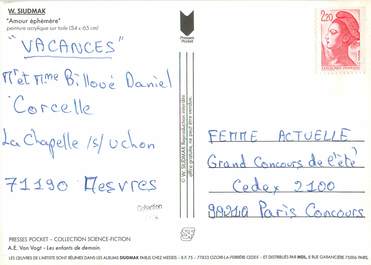 W. SIUDMAK
"Amour éphémère"
peinture acrylique sur toile (54 x 65 cm)
"VACANCES"
Mr et Mme Billoué Daniel
Corcelle
La Chapelle /s/ uchon
71190 Mesvres
PRESSES POCKET - COLLECTION SCIENCE-FICTION
A.E. Van Vogt - Les enfants de demain
Presses
Pocket
© W. SIUDMAK Reproduction interdite
2,20
FEMME ACTUELLE
Grand Concours de l'été
Cedex 2100
99210 Paris Concours
LES ŒUVRES DE L'ARTISTE SONT RÉUNIES DANS LES ALBUMS SIUDMAK